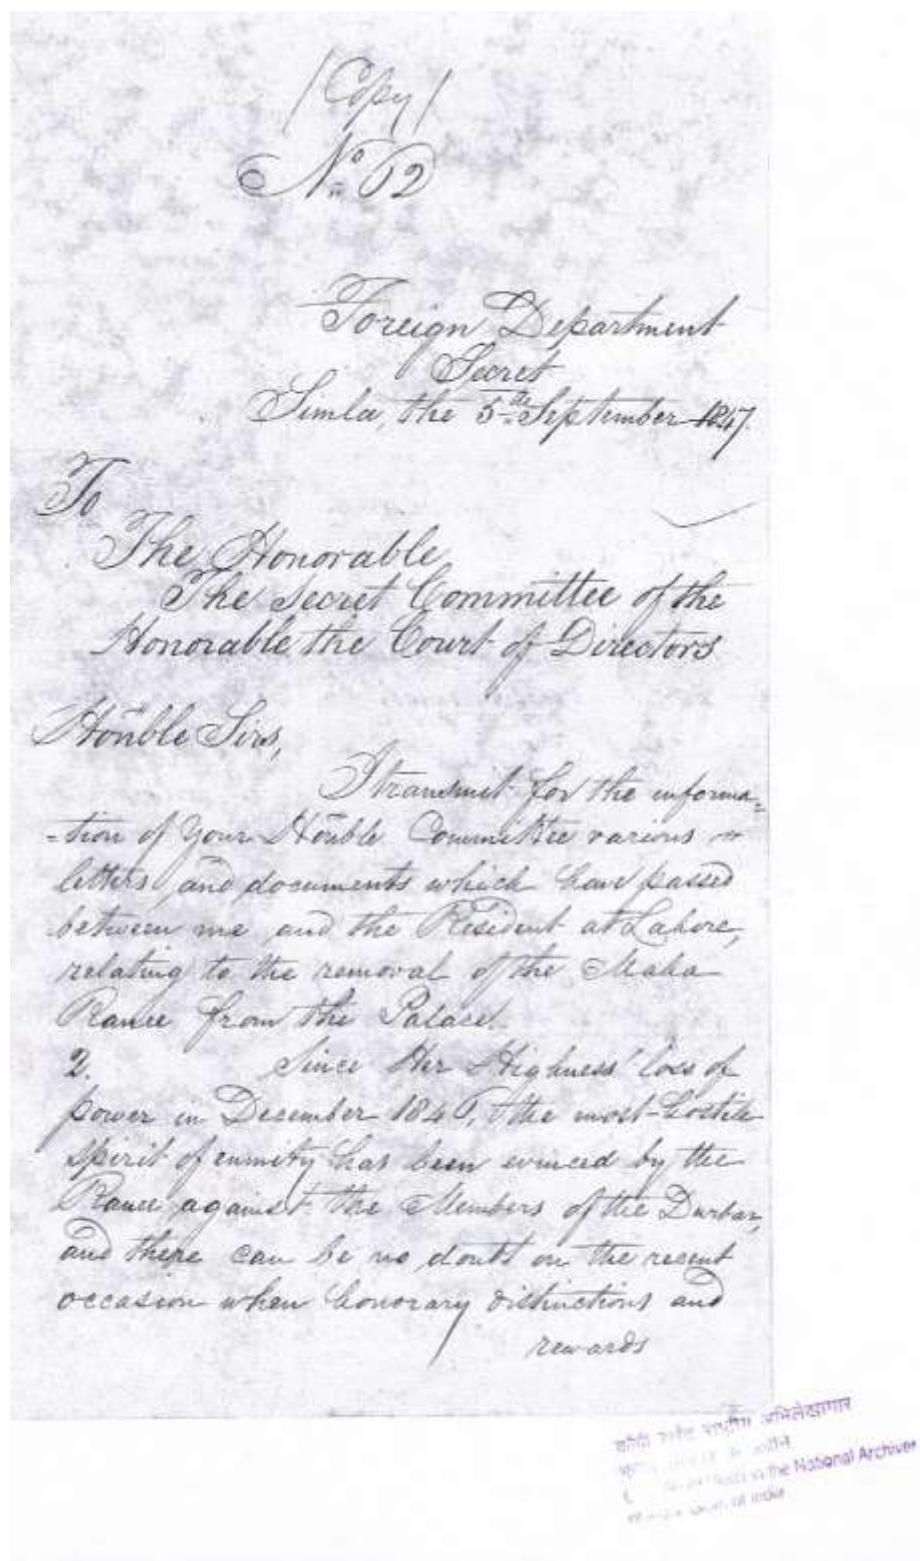 (Copy)
No. 62
Foreign Department
Secret
Simla, the 5th September 1847.
To
The Honorable
The Secret Committee of the
Honorable the Court of Directors
Hon'ble Sirs,
I transmit for the informa=
=tion of Your Hon'ble Committee various
letters and documents which have passed
between me and the Resident at Lahore,
relating to the removal of the Maha
Ranee from the Palace.
2. Since Her Highness' loss of
power in December 1846, the most hostile
spirit of enmity has been evinced by the
Ranee against the Members of the Durbar,
and there can be no doubt on the recent
occasion when honorary distinctions and
rewards
राष्ट्रीय अभिलेखागार
in the National Archives
of India